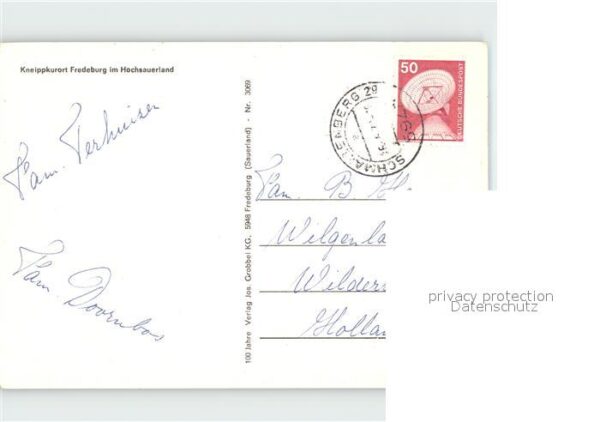 Kneippkurort Fredeburg im Hochsauerland
Fam. Terhuisen
Fam. Doornbos
100 Jahre Verlag Jos. Grobbel KG, 5948 Fredeburg (Sauerland) - Nr. 3069
50
DEUTSCHE BUNDESPOST
SCHMALLENBERG 29
Fam. B
Wilgenla
Wilder
Holla
privacy protection
Datenschutz